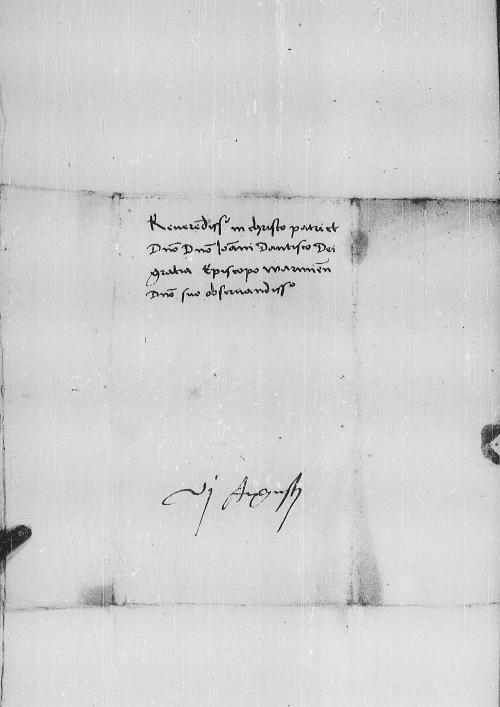 Reverendiss° in christo patri et
Dno Dno Joanni Dantisco Dei
gratia Episcopo warmien
Dno suo observandiss°
vj Augusti